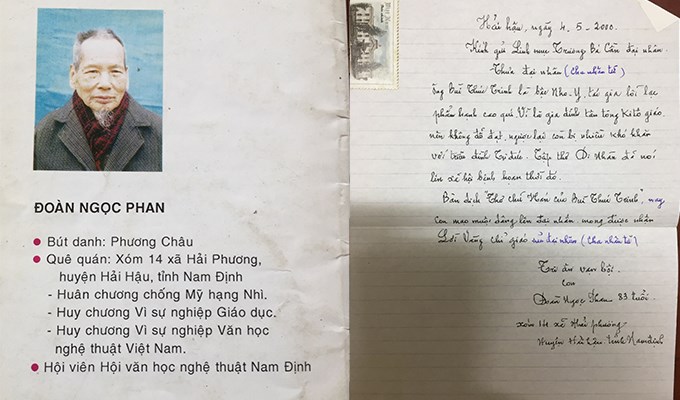 ĐOÀN NGỌC PHAN
Bút danh: Phương Châu
Quê quán: Xóm 14 xã Hải Phương,
huyện Hải Hậu, tỉnh Nam Định
- Huân chương chống Mỹ hạng Nhì.
- Huy chương Vì sự nghiệp Giáo dục.
- Huy chương Vì sự nghiệp Văn học
nghệ thuật Việt Nam.
Hội viên Hội văn học nghệ thuật Nam Định
Hải hậu, ngày 4-5-2000.
Kính gửi Linh mục Trương Bá Cần đại nhân.
Thưa đại nhân (cha nhân từ)
ông Bùi Thúc Trinh là bậc Nho-Y, tác gia lỗi lạc
phẩm hạnh cao quí. Vì là gia đình tân tòng Kitô giáo
nên không đỗ đạt, ngược lại còn bị nhiều khó khăn
với triều đình Tự đức. Tập thơ Di Nhân đã nói
lên xã hội bệnh hoạn thời đó.
Bản dịch "Thơ chữ Hán của Bùi Thúc Trinh", nay
con mạo muội dâng lên đại nhân. mong được nhận
Lời Vàng chỉ giáo của đại nhân (cha nhân từ)
Tri ân vạn bội.
con
Đoàn Ngọc Phan 83 tuổi.
xóm 14 xã Hải phương
Huyện Hải Hậu, tỉnh Nam định